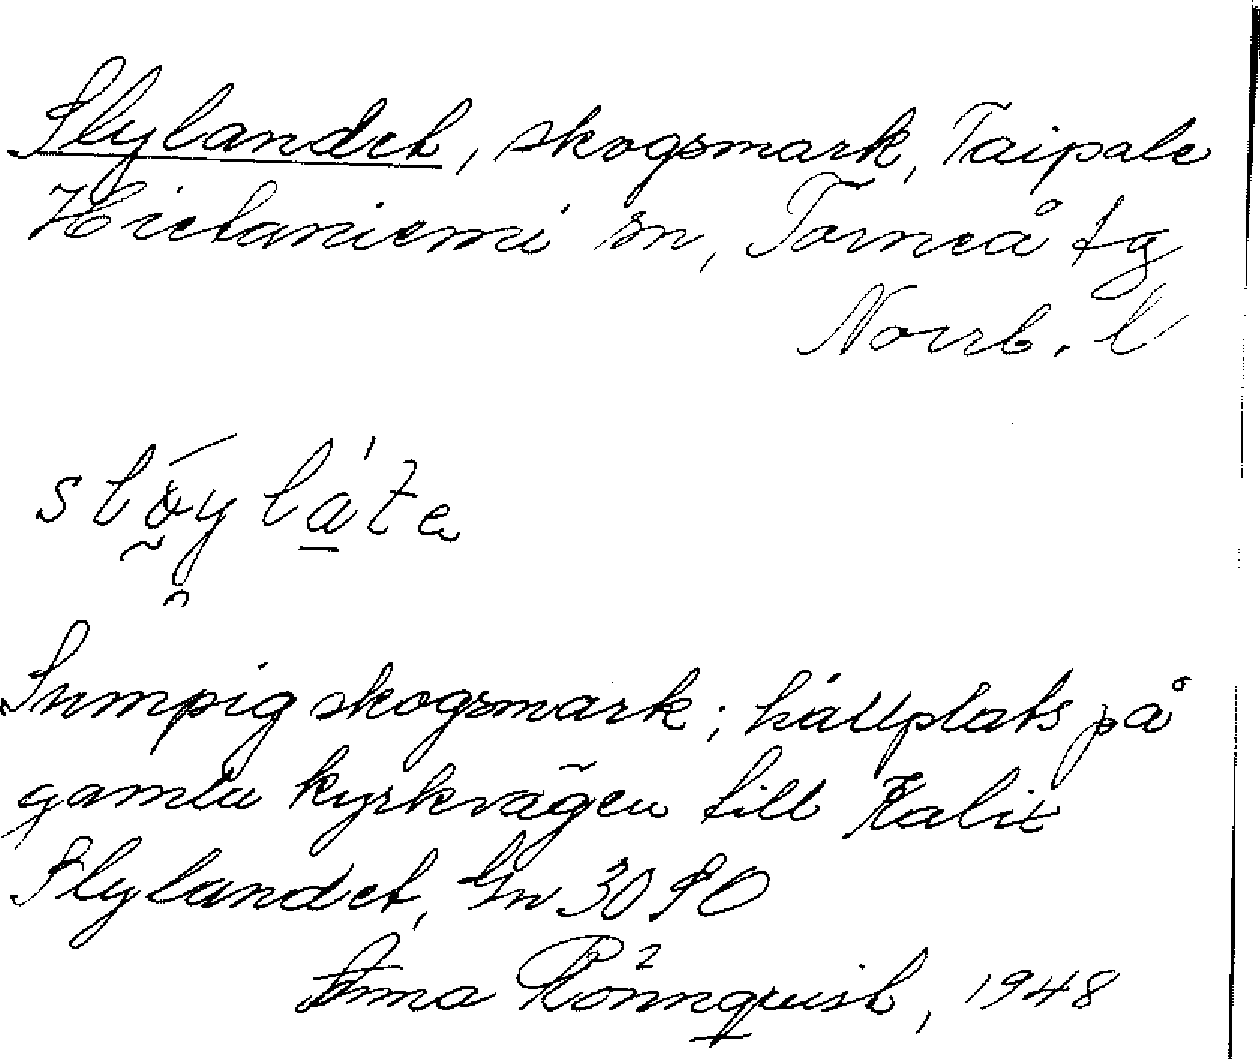 Slylandet, skogsmark, Taipale
Hietaniemi sn, Torneå tg
Norrb. l
Sumpig skogsmark; hållplats på
gamla kyrkvägen till Kalix
Slylandet, 30 SO
Rönnquist, 1948